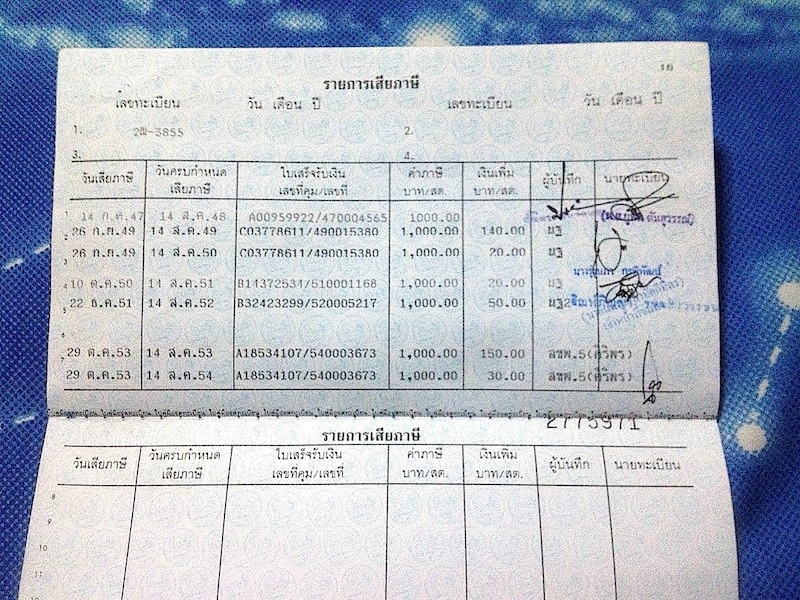 16
รายการเสียภาษี
เลขทะเบียน วัน เดือน ปี เลขทะเบียน วัน เดือน ปี
1. 2ฒ-3855 2.
3. 4.
วันเสียภาษี วันครบกำหนด ใบเสร็จรับเงิน ค่าภาษี เงินเพิ่ม ผู้บันทึก นายทะเบียน
เสียภาษี เลขที่คุม/เลขที่ บาท/สต. บาท/สต.
1 14 ก.ค.47 14 ส.ค.48 A00959922/470004565 1000.00
2 26 ก.ย.49 14 ส.ค.49 C03778611/490015380 1,000.00 140.00 นฐ
26 ก.ย.49 14 ส.ค.50 C03778611/490015380 1,000.00 20.00 นฐ
4 10 ต.ค.50 14 ส.ค.51 B14372534/510001168 1,000.00 20.00 นฐ
5 22 ธ.ค.51 14 ส.ค.52 B32423299/520005217 1,000.00 50.00 นฐ2
29 ต.ค.53 14 ส.ค.53 A18534107/540003673 1,000.00 150.00 ลชพ.5(ศิริพร)
29 ต.ค.53 14 ส.ค.54 A18534107/540003673 1,000.00 30.00 ลชพ.5(ศิริพร)
2775971
รายการเสียภาษี
วันเสียภาษี วันครบกำหนด ใบเสร็จรับเงิน ค่าภาษี เงินเพิ่ม ผู้บันทึก นายทะเบียน
เสียภาษี เลขที่คุม/เลขที่ บาท/สต. บาท/สต.
8
9
10
11